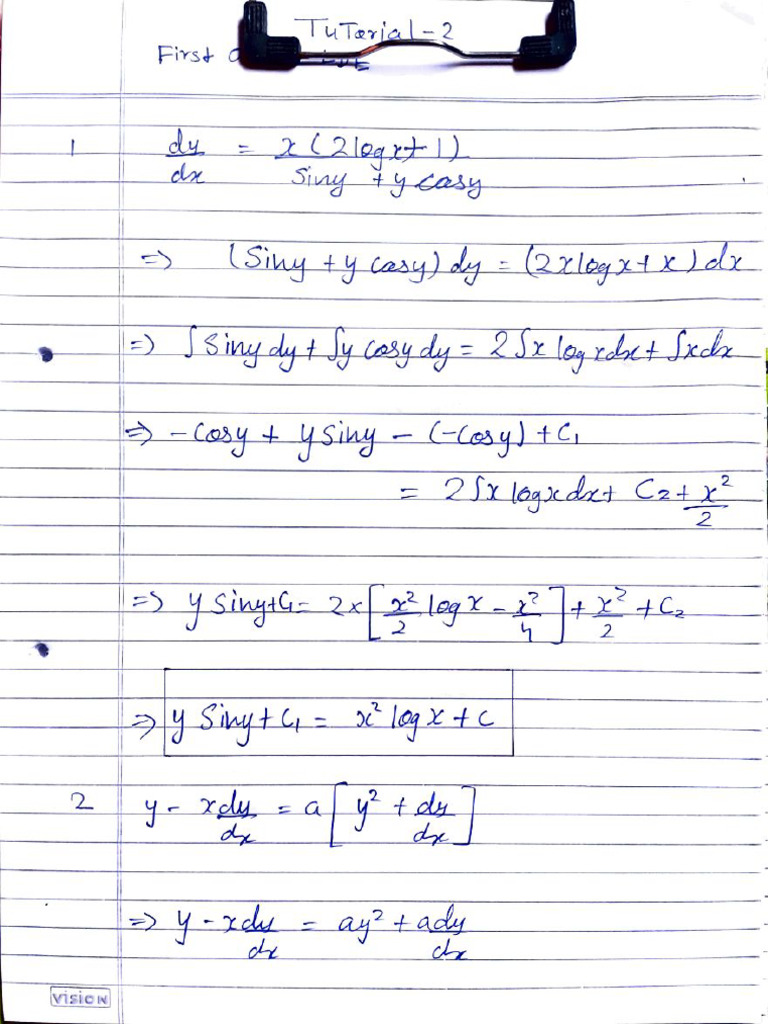 TuTorial-2
First
1 dy/dx = x(2logx+1)/(Siny + y cosy)
=> (Siny + y cosy) dy = (2xlogx + x) dx
=> ∫Siny dy + ∫y cosy dy = 2∫x logx dx + ∫x dx
=> -Cosy + y Siny - (-Cosy) + C₁
= 2∫x logx dx + C₂ + x²/2
=> y Siny + C₁ = 2×[x²/2 log x - x²/4] + x²/2 + C₂
=> y Siny + C₁ = x² log x + C
2 y - x dy/dx = a[y² + dy/dx]
=> y - x dy/dx = ay² + a dy/dx
VISION